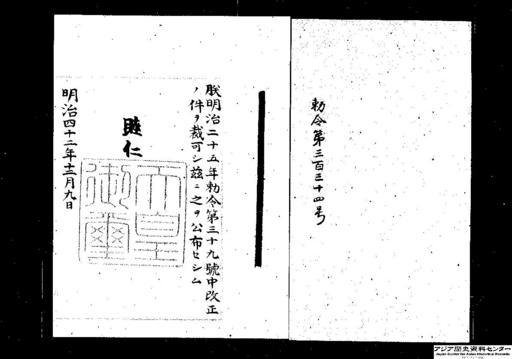 勅令第三百三十四号
朕明治二十五年勅令第三十九號中改正
ノ件ヲ裁可シ茲ニ之ヲ公布セシム
睦仁
天皇御璽
明治四十二年十二月九日
アジア歴史資料センター
Japan Center for Asian Historical Records